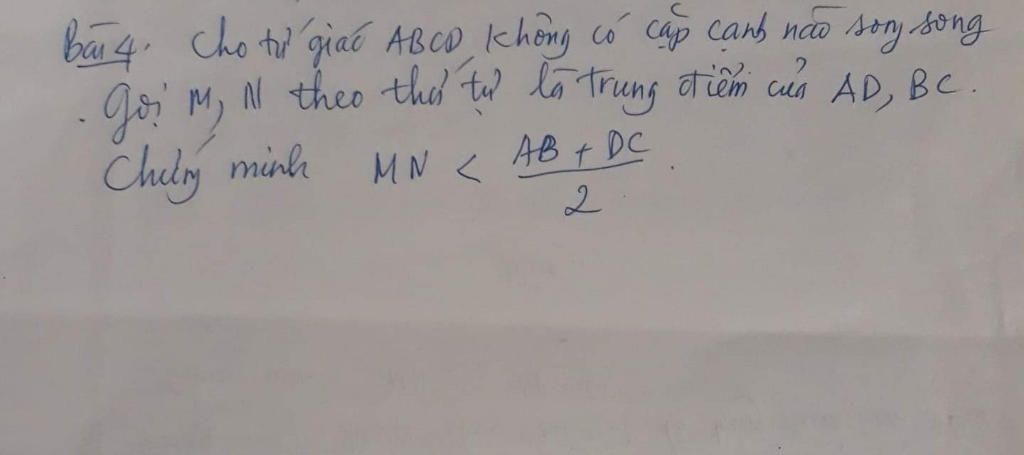 Bài 4. Cho tứ giác ABCD không có cặp cạnh nào song song
. Gọi M, N theo thứ tự là trung điểm của AD, BC.
Chứng minh MN < \frac{AB + DC}{2} .